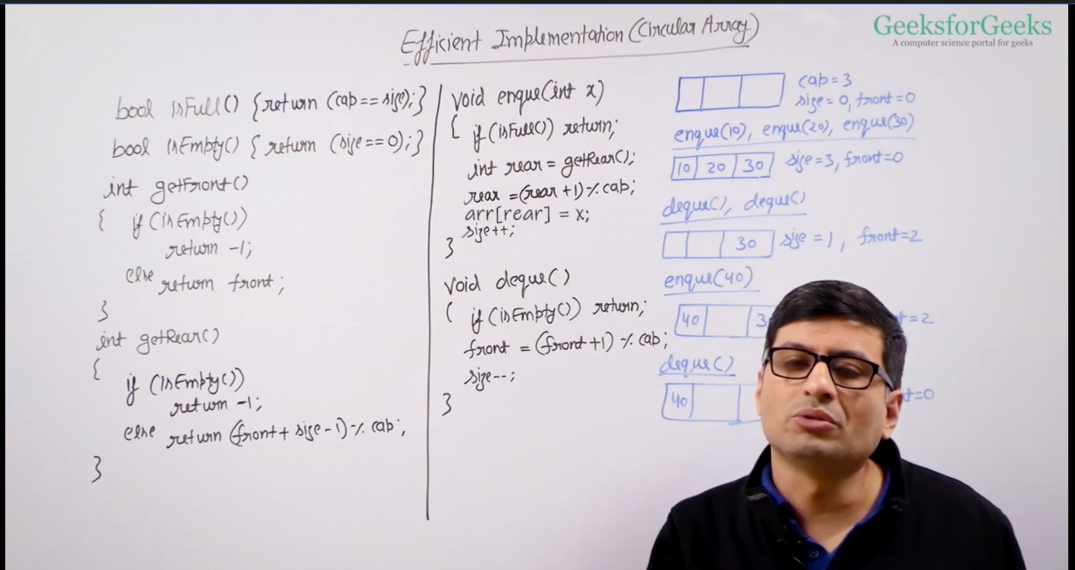 Efficient Implementation (Circular Array)
GeeksforGeeks
A computer science portal for geeks
bool isFull() {return (cap==size);}
bool isEmpty() {return (size==0);}
int getFront()
{ if (isEmpty())
return -1;
else return front;
}
int getRear()
{
if (isEmpty())
return -1;
else return (front + size - 1) % cap;
}
void enque(int x)
{ if (isFull()) return;
int rear = getRear();
rear = (rear + 1) % cap;
arr[rear] = x;
size++;
}
void deque()
{ if (isEmpty()) return;
front = (front+1) % cap;
size--;
}
cap=3
size=0, front=0
enque(10), enque(20), enque(30)
10 20 30 size=3, front=0
deque(), deque()
30 size=1, front=2
enque(40)
40 3 t=2
deque()
40 t=0